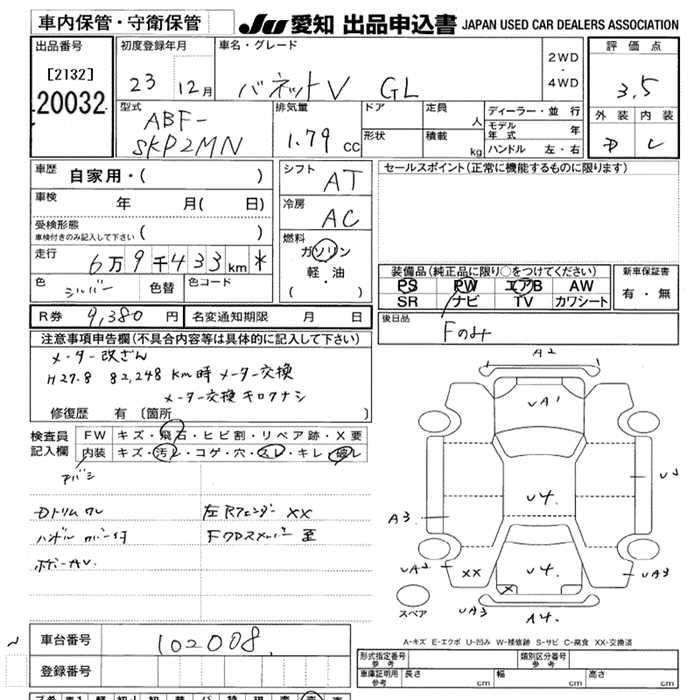 車内保管・守衛保管
JU 愛知 出品申込書 JAPAN USED CAR DEALERS ASSOCIATION
出品番号
[2132]
20032
初度登録年月
23 12月
車名・グレード
バネットV GL
2WD
・
4WD
評価点
3.5
外装 内装
型式
ABF-
SKP2MN
排気量
1.79 cc
ドア
形状
定員
人
積載
kg
ディーラー・並 行
モデル年式 年
ハンドル 左・右
車歴
自家用・( )
車検
年 月( 日)
受検形態
車検付きのみ記入して下さい ( )
走行
6万9千433km *
色 シルバー 色替 色コード
シフト
AT
冷房
AC
燃料
ガソリン
軽・油
( ・ )
セールスポイント(正常に機能するものに限ります)
装備品(純正品に限り○をつけてください)
PS PW エアB AW
SR ナビ TV カワシート
新車保証書
有・無
R券 9,380 円 名変通知期限 月 日
後日品
Fのみ
注意事項申告欄(不具合内容等は具体的に記入して下さい)
メーター改ざん
H27.8 82,248km時 メーター交換
メーター交換 キロクナシ
修復歴 有 〔箇所 〕
検査員
記入欄
FW キズ・飛石・ヒビ割・リペア跡・X要
内装 キズ・汚レ・コゲ・穴・スレ・キレ・破レ
Dトリム ワレ
左Rフェンダー XX
A2
UA1
U4.
A3
U4.
UA2
XX
U4.
X
UA3
UA3
A4.
スペア
A-キズ E-エクボ U-凹み W-補修跡 S-サビ C-腐食 XX-交換済
車台番号 102008
登録番号
形式指定番号
参考
類別区分番号
参考
車庫証明用
参考
長さ cm 幅 cm 高さ cm